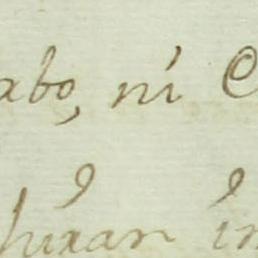 abo, ni C
juxan in